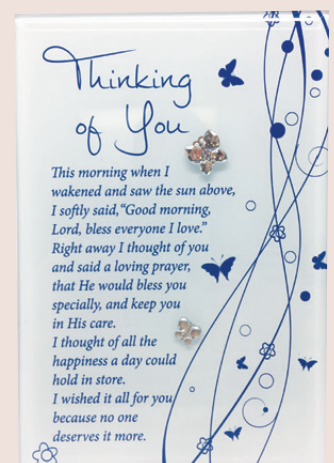 Thinking
of You
This morning when I
wakened and saw the sun above,
I softly said, “Good morning,
Lord, bless everyone I love.”
Right away I thought of you
and said a loving prayer,
that He would bless you
specially, and keep you
in His care.
I thought of all the
happiness a day could
hold in store.
I wished it all for you
because no one
deserves it more.